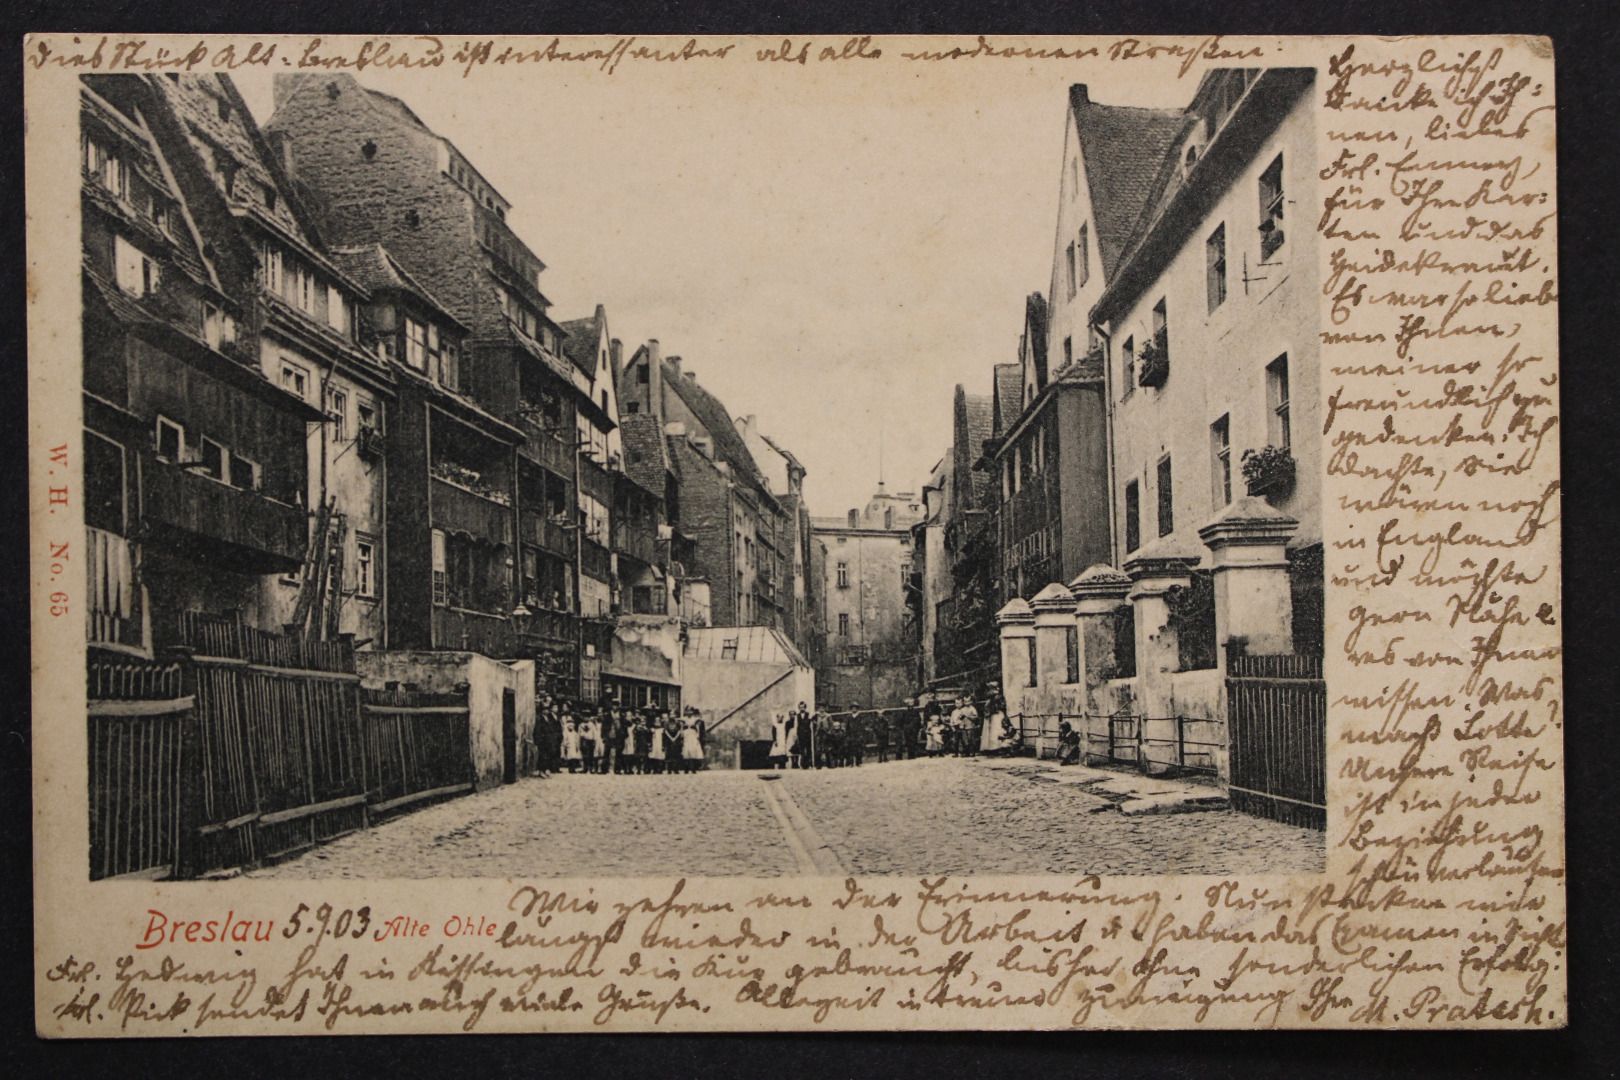 Dies Stück Alt-Breslau ist interessanter als alle modernen Straßen.
Herzlichst
danke ich Ih-
nen, liebes
Frl. Emmy,
für Ihre Kar-
ten und das
Heidekraut.
Es war so lieb
von Ihnen,
meiner so
freundlich zu
gedenken. Ich
dachte, Sie
wären noch
in England
und möchte
gern Nähe-
res von Ihnen
wissen. Was
macht Lotte?
Unsere Reise
ist in jeder
Beziehung
schön verlaufen.
W. H. No. 65
Wir zehren an der Erinnerung. Nun stecken wir
Breslau 5.9.03 Alte Ohle
längst wieder in der Arbeit u. haben das Examen in Sicht.
Frl. Hedwig hat in Kissingen die Kur gebraucht, bisher ohne sonderlichen Erfolg.
Frl. Pick sendet Ihnen auch viele Grüße. Allezeit in treuer Zuneigung Ihre M. Pratsch.